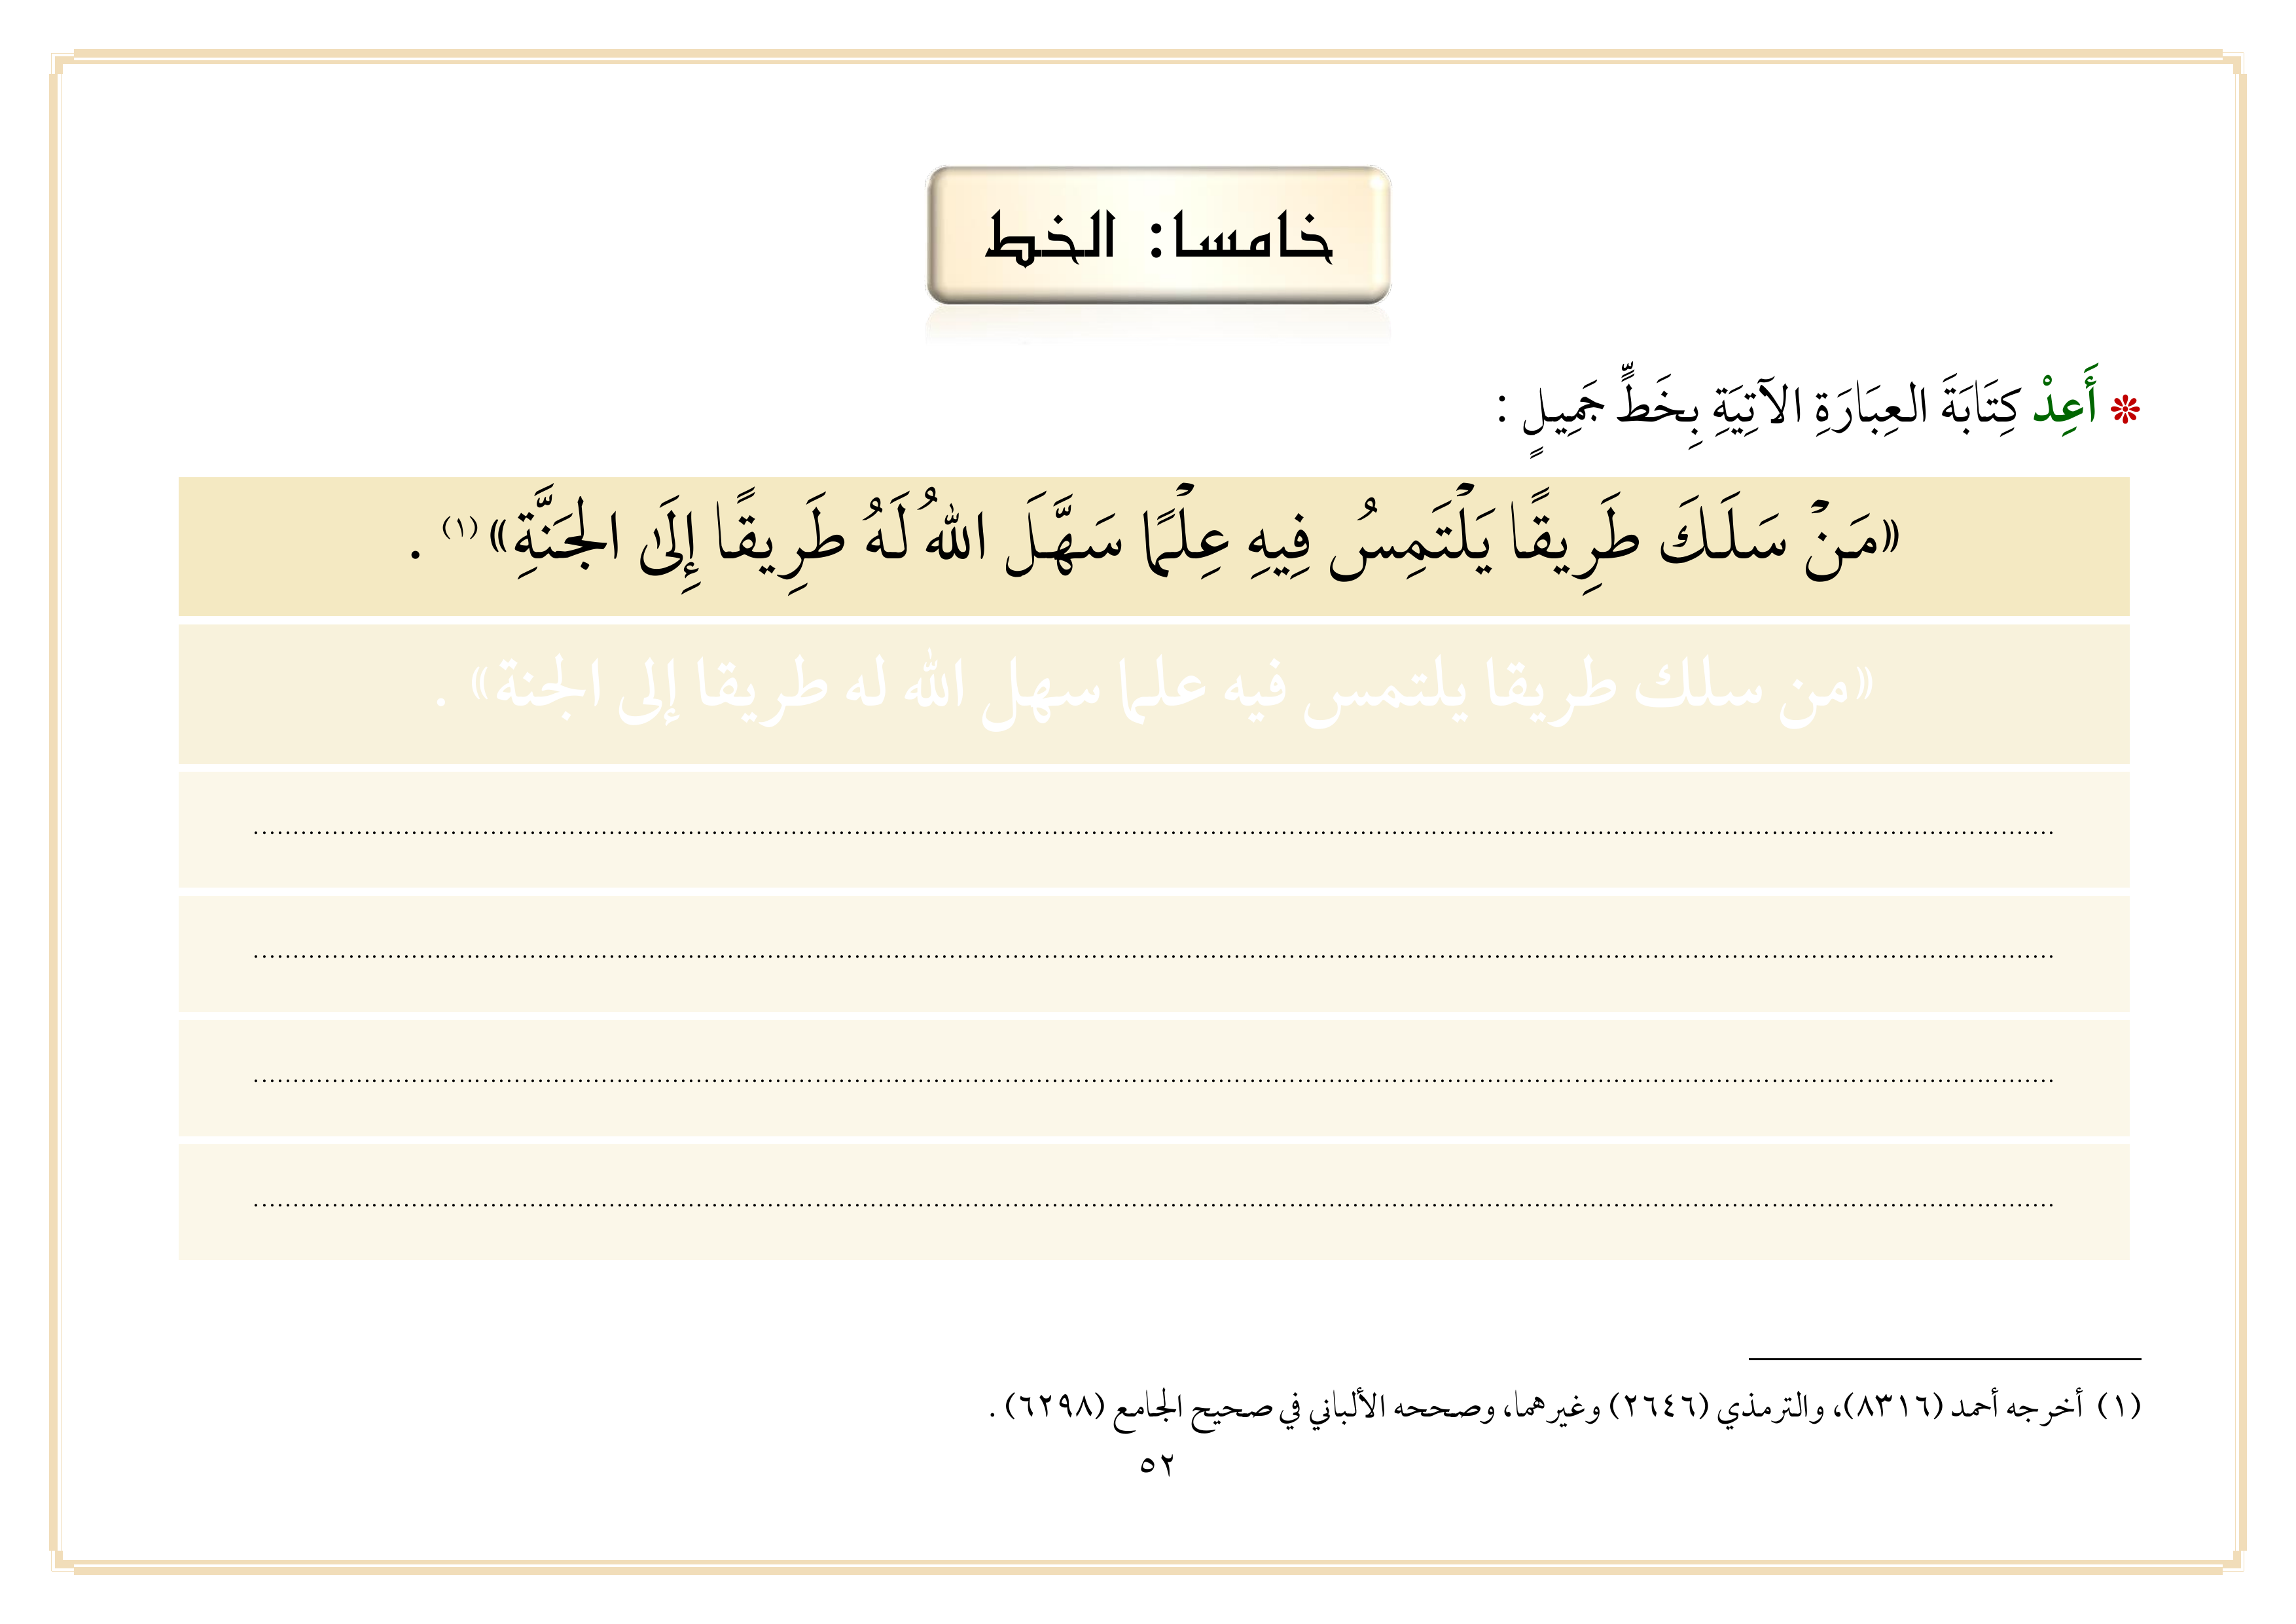 خامسا: الخط
❊ أَعِدْ كِتَابَةَ العِبَارَةِ الآتِيَةِ بِخَطٍّ جَمِيلٍ :
«مَنْ سَلَكَ طَرِيقًا يَلْتَمِسُ فِيهِ عِلْمًا سَهَّلَ اللهُ لَهُ طَرِيقًا إِلَى الجَنَّةِ» (١) .
«من سلك طريقا يلتمس فيه علما سهل الله له طريقا إلى الجنة» .
(١) أخرجه أحمد (٨٣١٦)، والترمذي (٢٦٤٦) وغيرهما، وصححه الألباني في صحيح الجامع (٦٢٩٨) .
٥٢